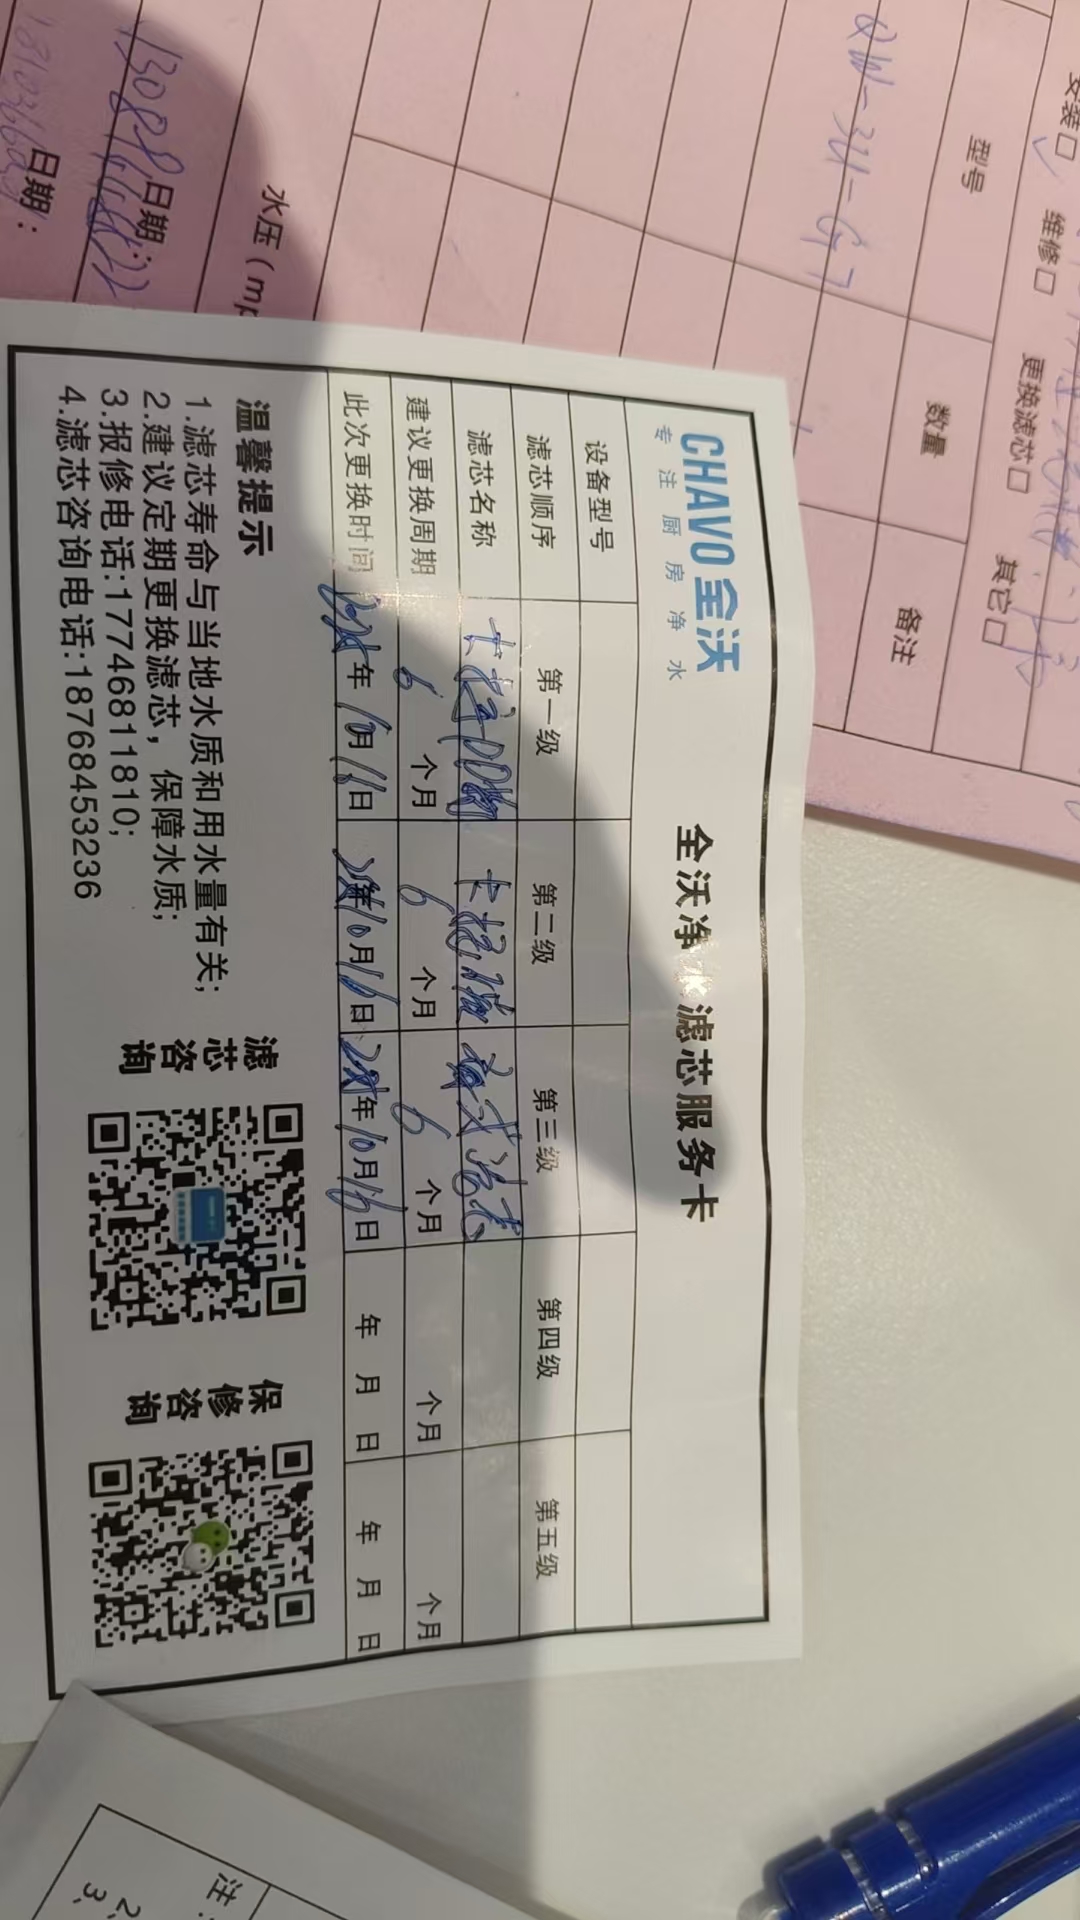 安装□ 维修□ 更换滤芯□ 其它□
型号 数量 备注
QW-3U-G7
水压（mp
日期：
日期：
CHAVO全沃
专注厨房净水
全沃净水滤芯服务卡
设备型号
滤芯顺序 第一级 第二级 第三级 第四级 第五级
滤芯名称
建议更换周期 6个月 6个月 6个月 个月 个月
此次更换时间 年10月16日 年10月16日 年10月16日 年 月 日 年 月 日
温馨提示
1.滤芯寿命与当地水质和用水量有关；
2.建议定期更换滤芯，保障水质；
3.报修电话:17746811810;
4.滤芯咨询电话:18768453236
滤芯咨询
保修咨询
注：
2;
3;